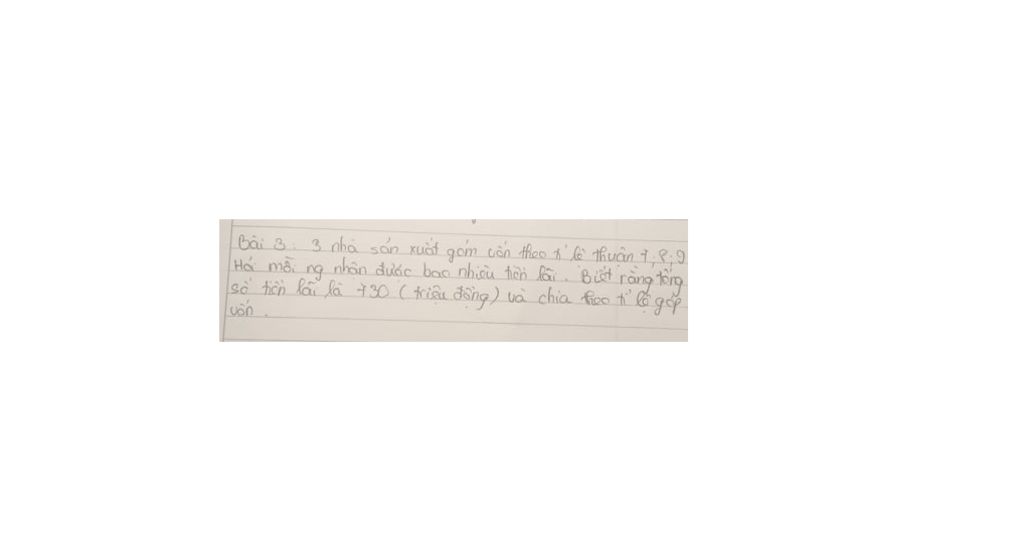 Bài 3: 3 nhà sản xuất góm vốn theo tỉ lệ thuận 7, 8, 9
Hỏi mỗi ng nhận được bao nhiêu tiền lãi. Biết rằng tổng
số tiền lãi là 730 (triệu đồng) và chia theo tỉ lệ góp
vốn.